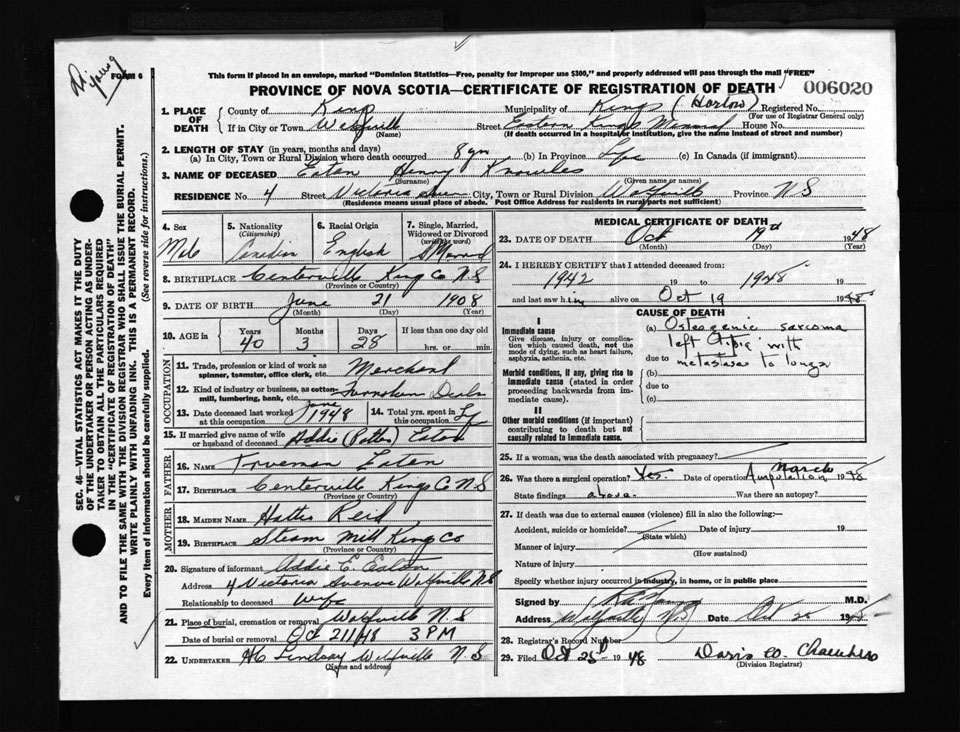 Dr. Young
FORM 6
This form if placed in an envelope, marked "Dominion Statistics—Free, penalty for improper use $300," and properly addressed will pass through the mail "FREE"
PROVINCE OF NOVA SCOTIA—CERTIFICATE OF REGISTRATION OF DEATH
006020
1. PLACE OF DEATH
County of Kings Municipality of Kings (Horton) Registered No.
(For use of Registrar General only)
If in City or Town Wolfville Street Eastern Kings Memorial House No.
(Name) (If death occurred in a hospital or institution, give the name instead of street and number)
2. LENGTH OF STAY (in years, months and days)
(a) In City, Town or Rural Division where death occurred 8 yrs (b) In Province Life (c) In Canada (if immigrant)
3. NAME OF DECEASED Eaton Henry Knowles
(Surname) (Given name or names)
RESIDENCE No. 4 Street Victoria Ave City, Town or Rural Division Wolfville Province N S
(Residence means usual place of abode. Post Office Address for residents in rural parts not sufficient)
4. Sex
Male
5. Nationality
(Citizenship)
Canadian
6. Racial Origin
English
7. Single, Married, Widowed or Divorced
(write the word)
Married
8. BIRTHPLACE Centerville Kings Co N.S
(Province or Country)
9. DATE OF BIRTH June 21 1908
(Month) (Day) (Year)
10. AGE in
Years Months Days If less than one day old
40 3 28 hrs. or min.
OCCUPATION
11. Trade, profession or kind of work as spinner, teamster, office clerk, etc. Merchant
12. Kind of industry or business, as cotton-mill, lumbering, bank, etc. Furniture Dealer
13. Date deceased last worked at this occupation June 1948
14. Total yrs. spent in this occupation Life
15. If married give name of wife or husband of deceased Addie (Patton) Eaton
FATHER
16. NAME Trueman Eaton
17. BIRTHPLACE Centerville Kings Co N S
(Province or Country)
MOTHER
18. MAIDEN NAME Hattie Reid
19. BIRTHPLACE Steam Mill Kings Co
(Province or Country)
20. Signature of informant Addie E. Eaton
Address 4 Victoria Avenue Wolfville N S
Relationship to deceased Wife
21. Place of burial, cremation or removal Wolfville N.S
Date of burial or removal Oct 21/48 3 PM
22. UNDERTAKER HC Lindsay Wolfville N.S
(Name and address)
MEDICAL CERTIFICATE OF DEATH
23. DATE OF DEATH Oct 19th 1948
(Month) (Day) (Year)
24. I HEREBY CERTIFY that I attended deceased from:
1942 19 to 1948 19
and last saw him alive on Oct 19 1948
CAUSE OF DEATH
I
Immediate cause
Give disease, injury or complication which caused death, not the mode of dying, such as heart failure, asphyxia, asthenia, etc.
(a) Osteogenic sarcoma
left tibia with
due to metastases to lungs
Morbid conditions, if any, giving rise to immediate cause (stated in order proceeding backwards from immediate cause).
(b)
due to
(c)
II
Other morbid conditions (if important) contributing to death but not causally related to immediate cause.
25. If a woman, was the death associated with pregnancy?
26. Was there a surgical operation? Yes. Date of operation March 1948
Amputation
State findings above. Was there an autopsy?
27. If death was due to external causes (violence) fill in also the following:—
Accident, suicide or homicide? Date of injury 19
(State which)
Manner of injury
(How sustained)
Nature of injury
Specify whether injury occurred in industry, in home, or in public place
Signed by M.D.
Address Wolfville N.S Date Oct 25 1948
28. Registrar's Record Number
29. Filed Oct 25th 1948 Doris W. Chambers
(Division Registrar)
SEC. 46—VITAL STATISTICS ACT MAKES IT THE DUTY
OF THE UNDERTAKER OR PERSON ACTING AS UNDER-
TAKER TO OBTAIN ALL THE PARTICULARS REQUIRED
IN THE "CERTIFICATE OF REGISTRATION OF DEATH"
AND TO FILE THE SAME WITH THE DIVISION REGISTRAR WHO SHALL ISSUE THE BURIAL PERMIT.
WRITE PLAINLY WITH UNFADING INK. THIS IS A PERMANENT RECORD.
Every item of information should be carefully supplied. (See reverse side for instructions.)